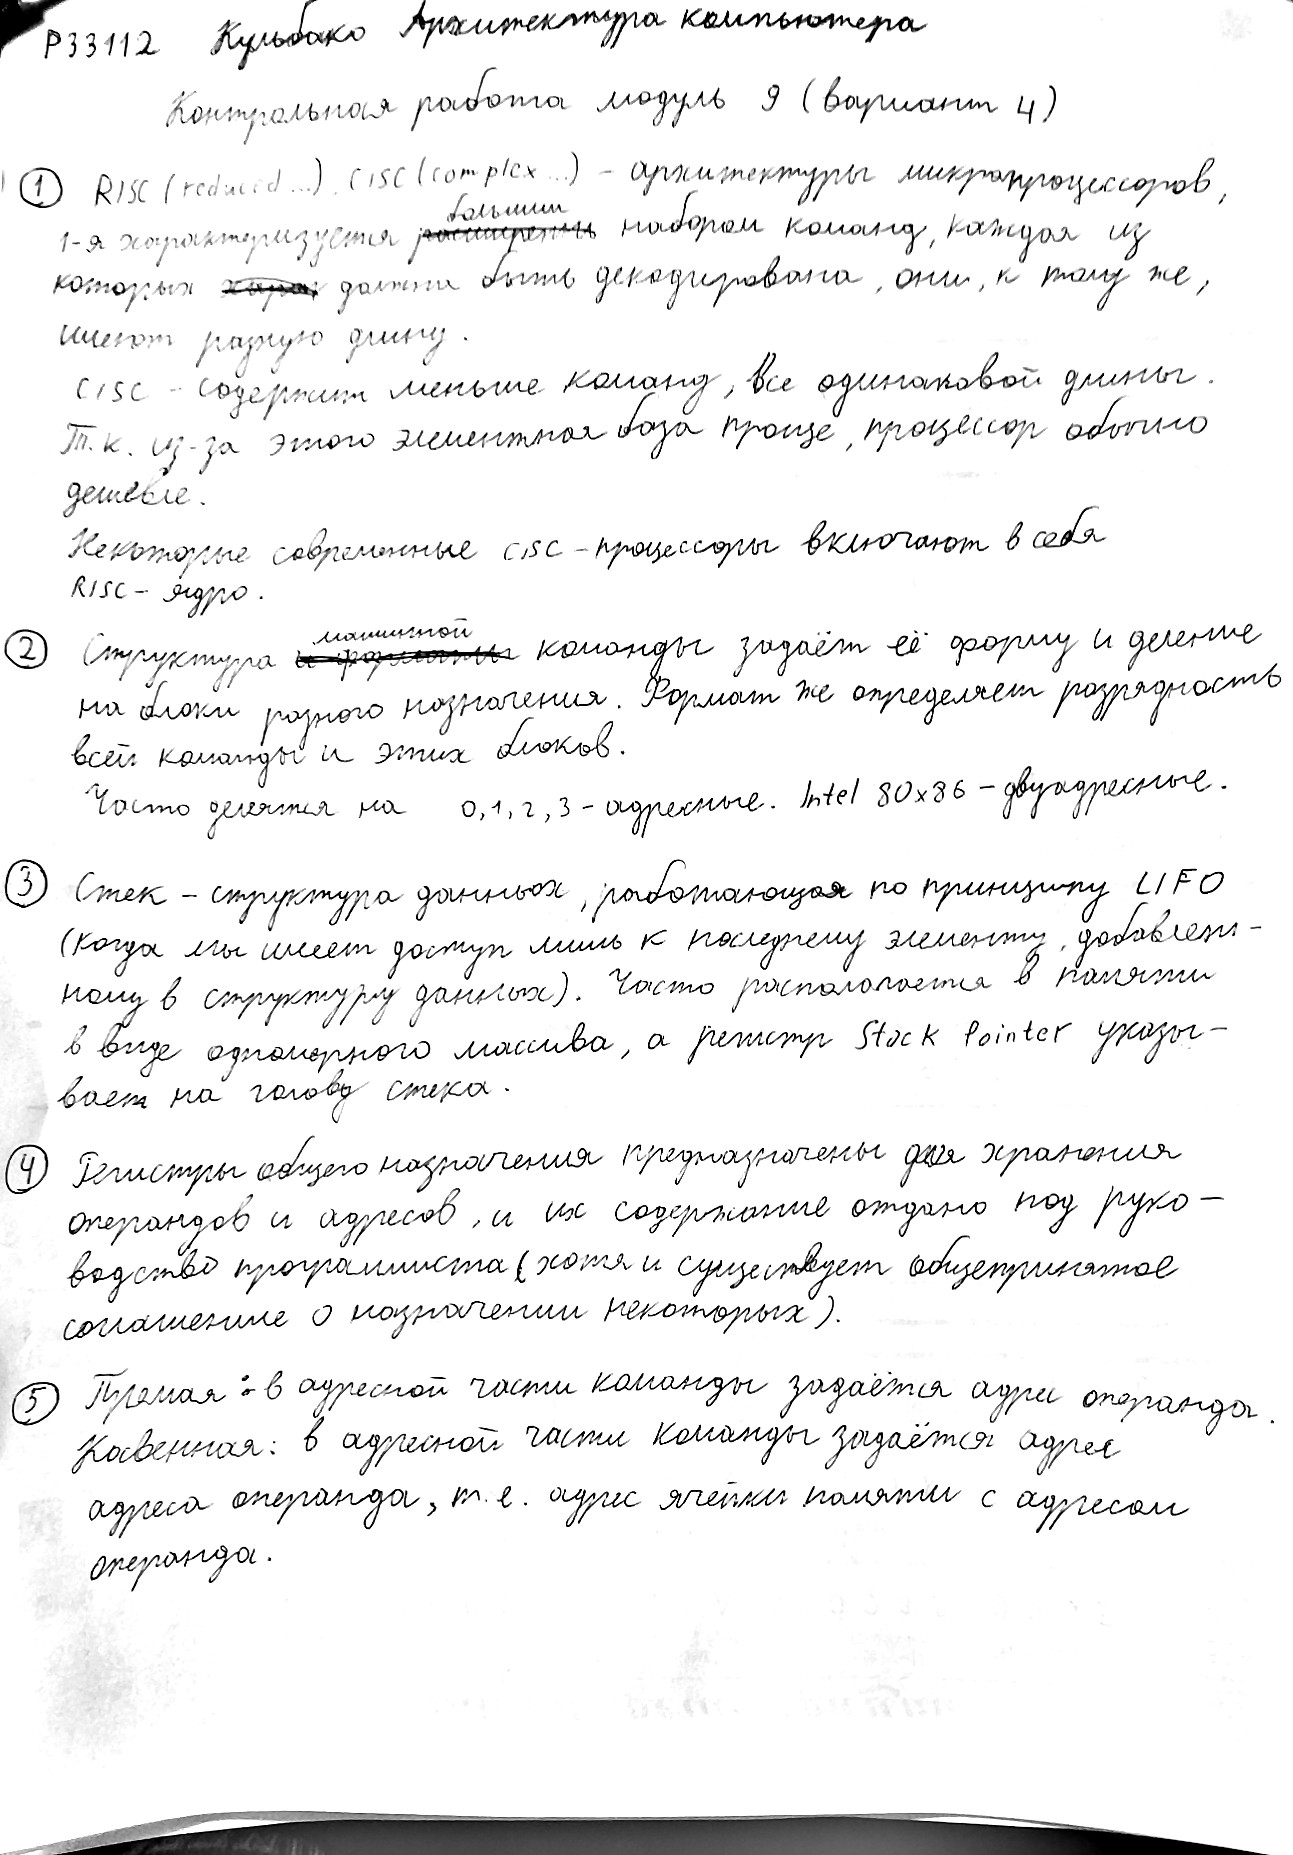 Р33112 Кульбако Архитектура компьютера
Контрольная работа модуль 9 (вариант 4)
① RISC (reduced ...), CISC (complex ...) – архитектуры микропроцессоров,
1-я характеризуется большим набором команд, каждая из
которых должна быть декодирована, они, к тому же,
имеют разную длину.
CISC – содержит меньше команд, все одинаковой длины.
Т.к. из-за этого элементная база проще, процессор обычно
дешевле.
Некоторые современные CISC – процессоры включают в себя
RISC – ядро.
② Структура машинной команды задаёт её форму и деление
на блоки разного назначения. Формат же определяет разрядность
всей команды и этих блоков.
Часто делятся на 0,1,2,3 – адресные. Intel 80x86 – двуадресные.
③ Стек – структура данных, работающая по принципу LIFO
(когда мы имеет доступ лишь к последнему элементу, добавлен-
ному в структуру данных). Часто располагается в памяти
в виде одномерного массива, а регистр Stack Pointer указы-
вает на голову стека.
④ Регистры общего назначения предназначены для хранения
операндов и адресов, и их содержание отдано под руко-
водство программиста (хотя и существует общепринятое
соглашение о назначении некоторых).
⑤ Прямая: в адресной части команды задаётся адрес операнда.
Косвенная: в адресной части команды задаётся адрес
адреса операнда, т.е. адрес ячейки памяти с адресом
операнда.